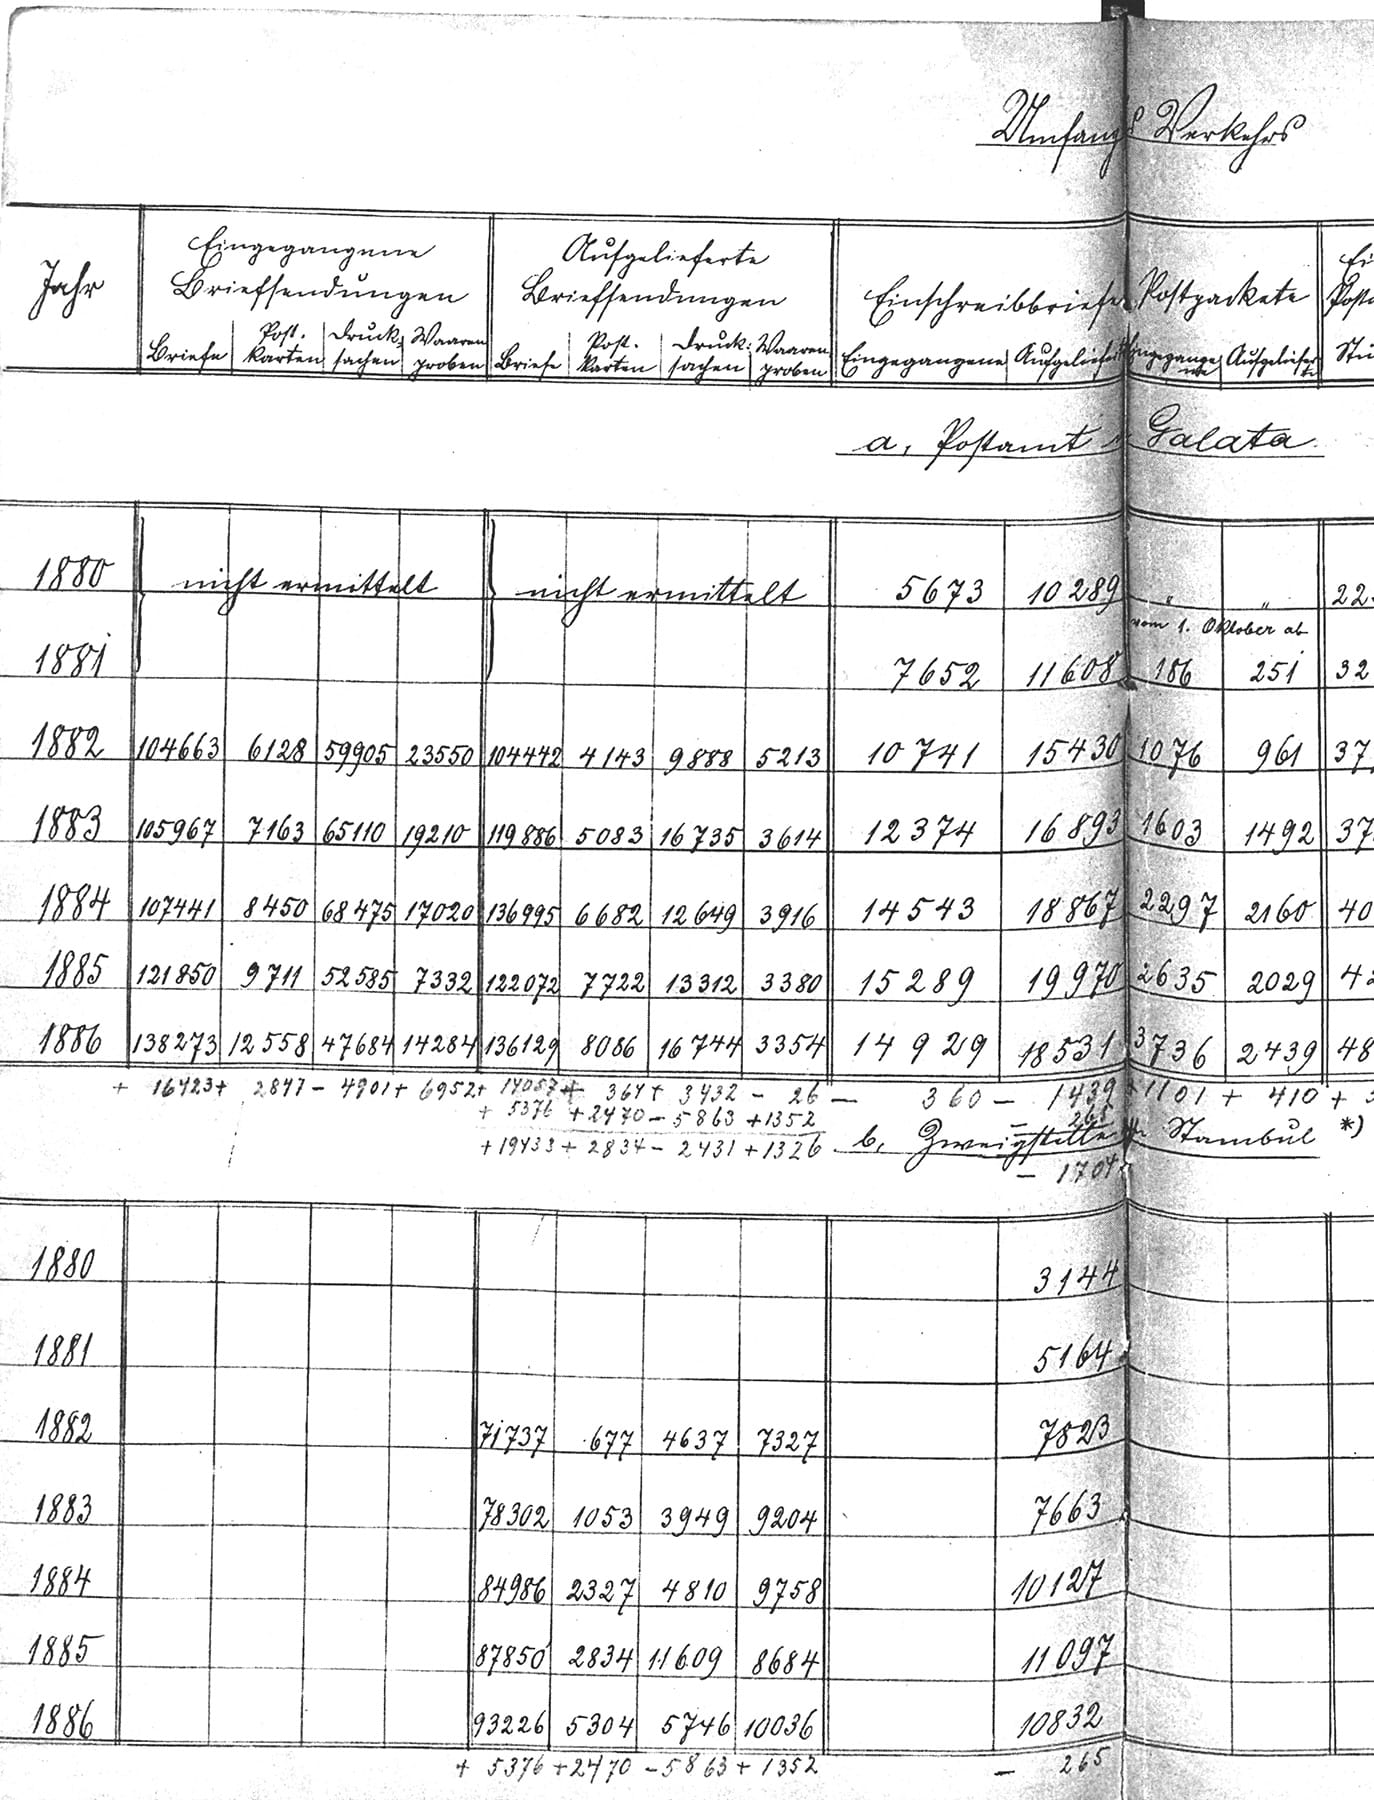 Umfang Verkehrs
Jahr Eingegangene Briefsendungen Aufgelieferte Briefsendungen Einschreibbriefe Postpackete
Briefe Post-karten Druck-sachen Waaren proben Briefe Post-karten Druck-sachen Waaren proben Eingegangene Aufgeliefert Eingegangene Aufgelieferte Stü
a, Postamt Galata
1880 nicht ermittelt nicht ermittelt 5673 10289 " " 22
vom 1. Oktober ab
1881 7652 11608 186 251 32
1882 104663 6128 59905 23550 104442 4143 9888 5213 10741 15430 1076 961 37
1883 105967 7163 65110 19210 119886 5083 16735 3614 12374 16893 1603 1492 37
1884 107441 8450 68475 17020 136995 6682 12649 3916 14543 18867 2297 2160 40
1885 121850 9711 52585 7332 122072 7722 13312 3380 15289 19970 2635 2029 42
1886 138273 12558 47684 14284 136129 8086 16744 3354 14929 18531 3736 2439 48
+ 16423 + 2847 - 4901 + 6952 + 14057 + 364 + 3432 - 26 - 360 - 1439 + 1101 + 410 +
+ 5376 + 2470 - 5863 + 1352 - 265
+ 19433 + 2834 - 2431 + 1326
b, Zweigstelle Stambul *)
- 1704
1880 3144
1881 5164
1882 71737 677 4637 7327 7823
1883 78302 1053 3949 9204 7663
1884 84986 2327 4810 9758 10127
1885 87850 2834 11609 8684 11097
1886 93226 5304 5746 10036 10832
+ 5376 + 2470 - 5863 + 1352 - 265